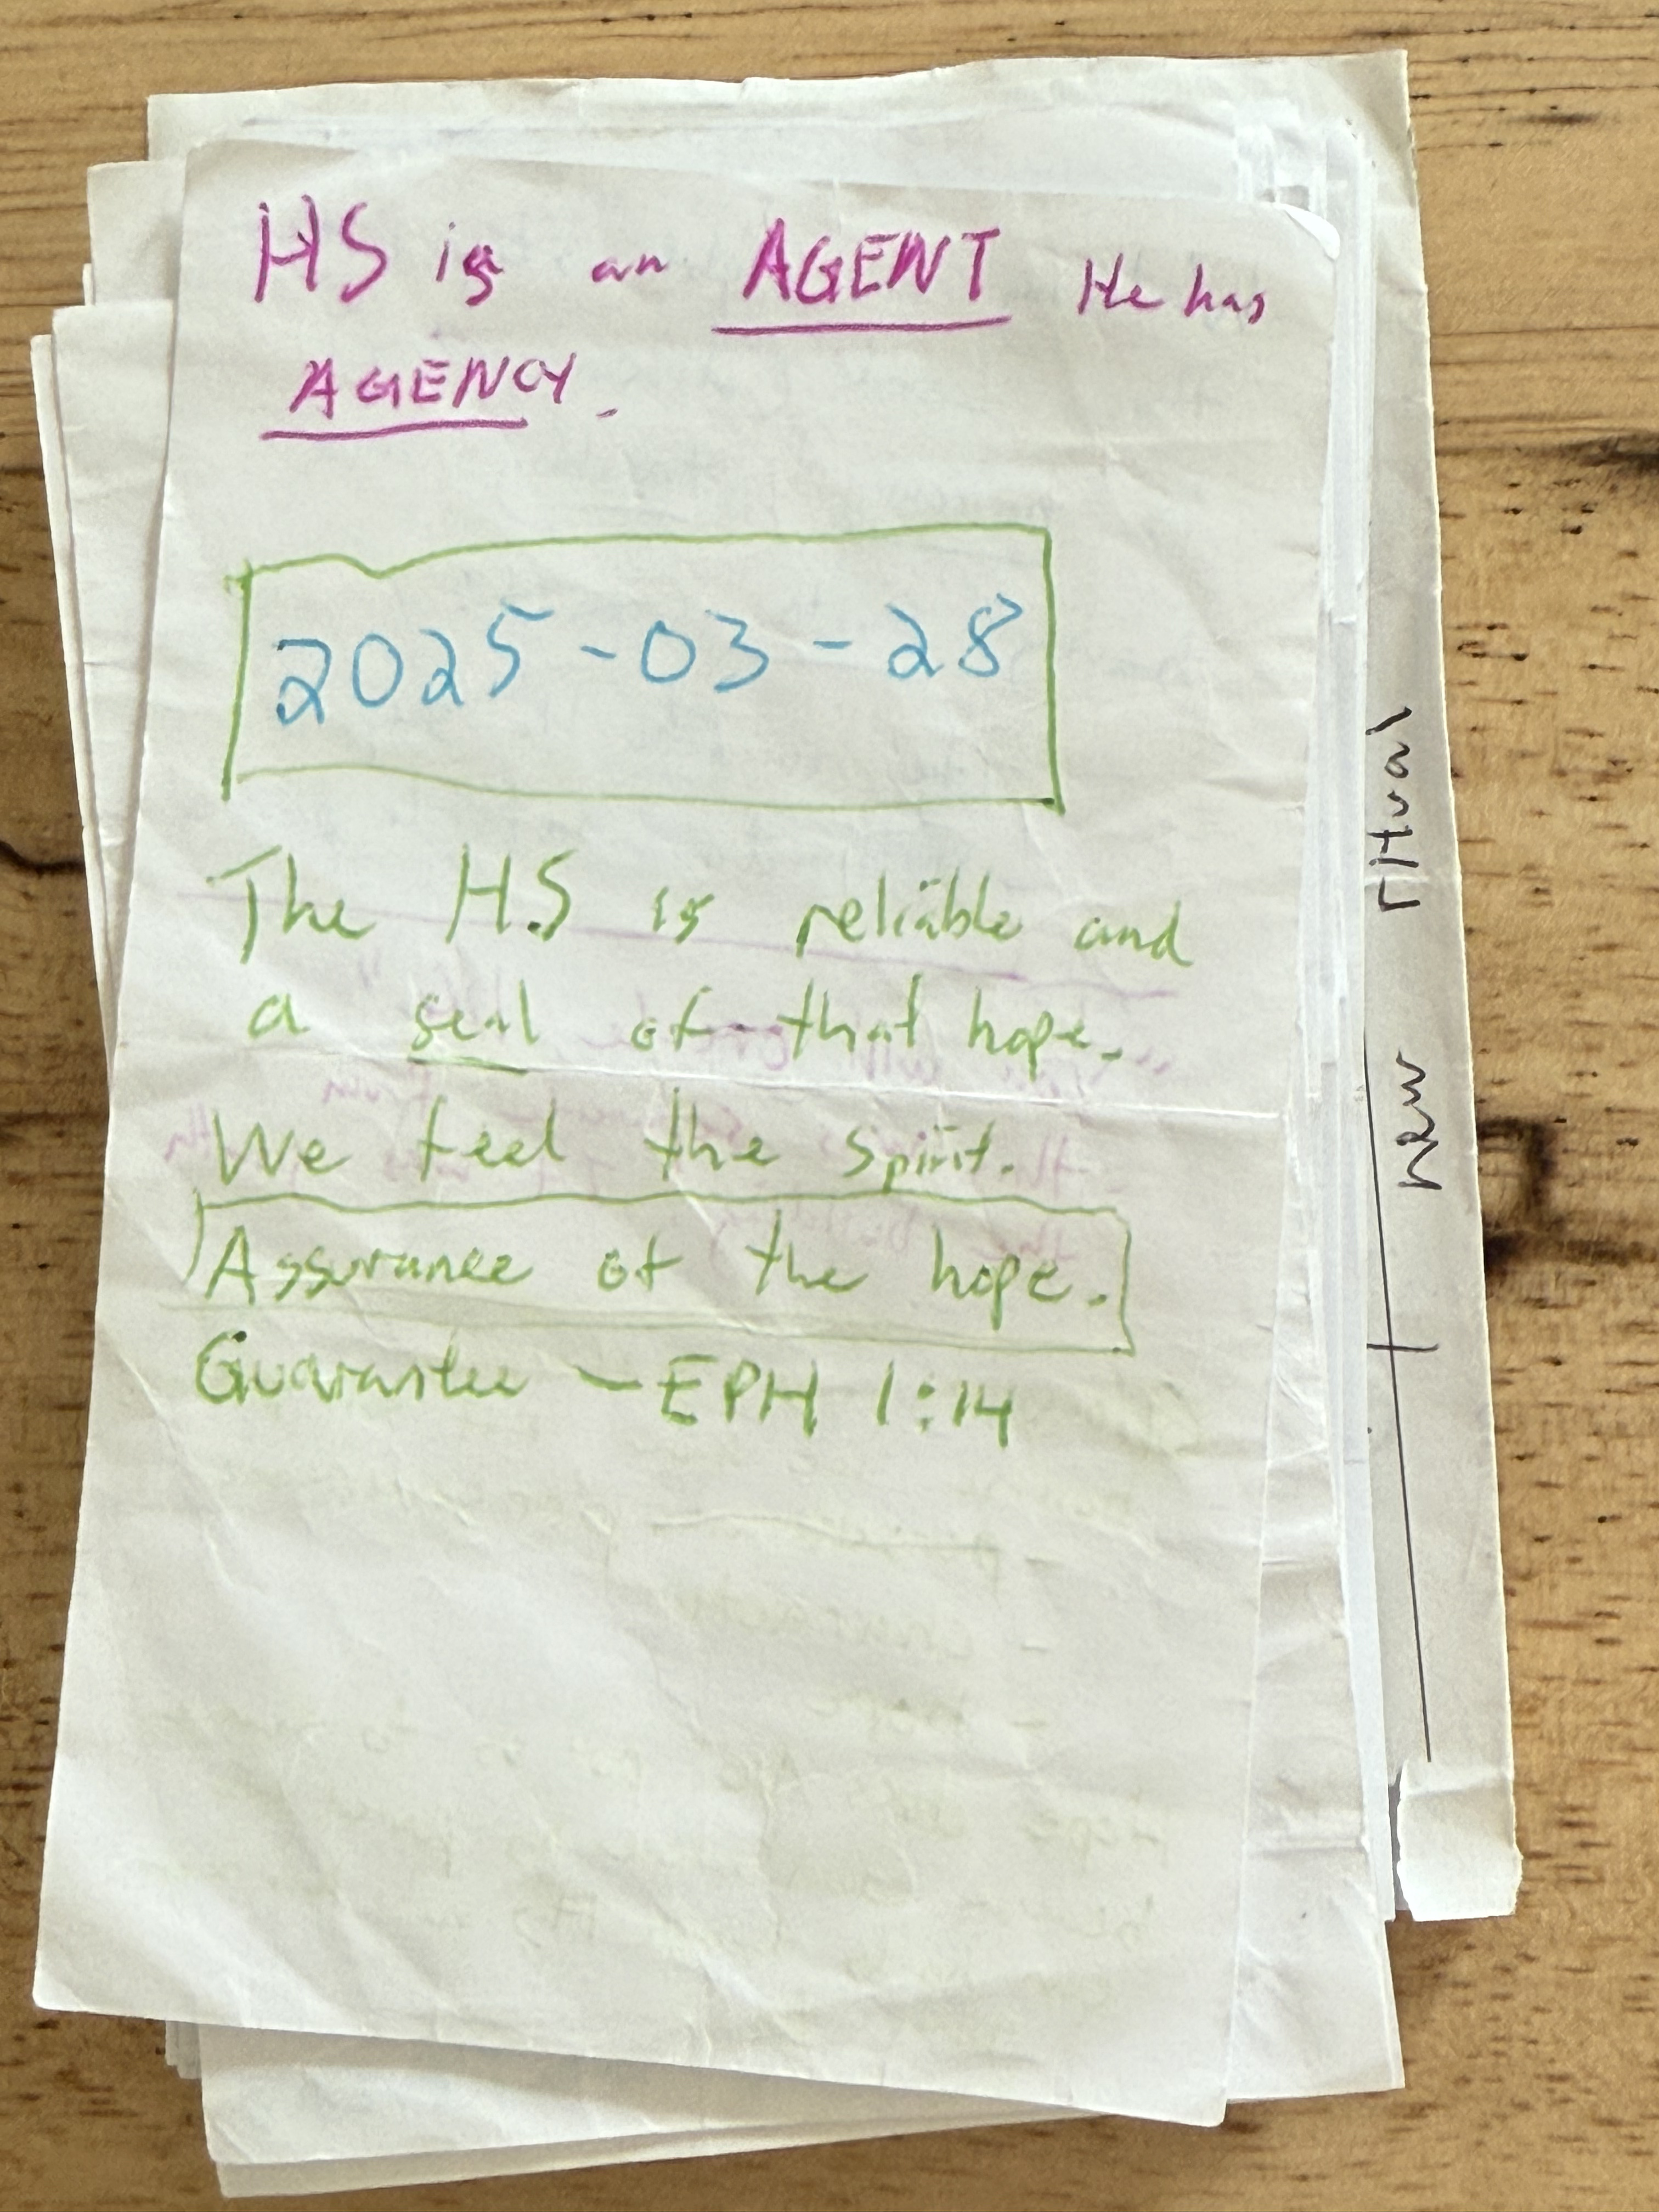 HS is an AGENT He has
AGENCY.
2025-03-28
The H.S is reliable and
a seal of that hope.
We feel the spirit.
Assurance of the hope.
Guarantee - EPH 1:14
new